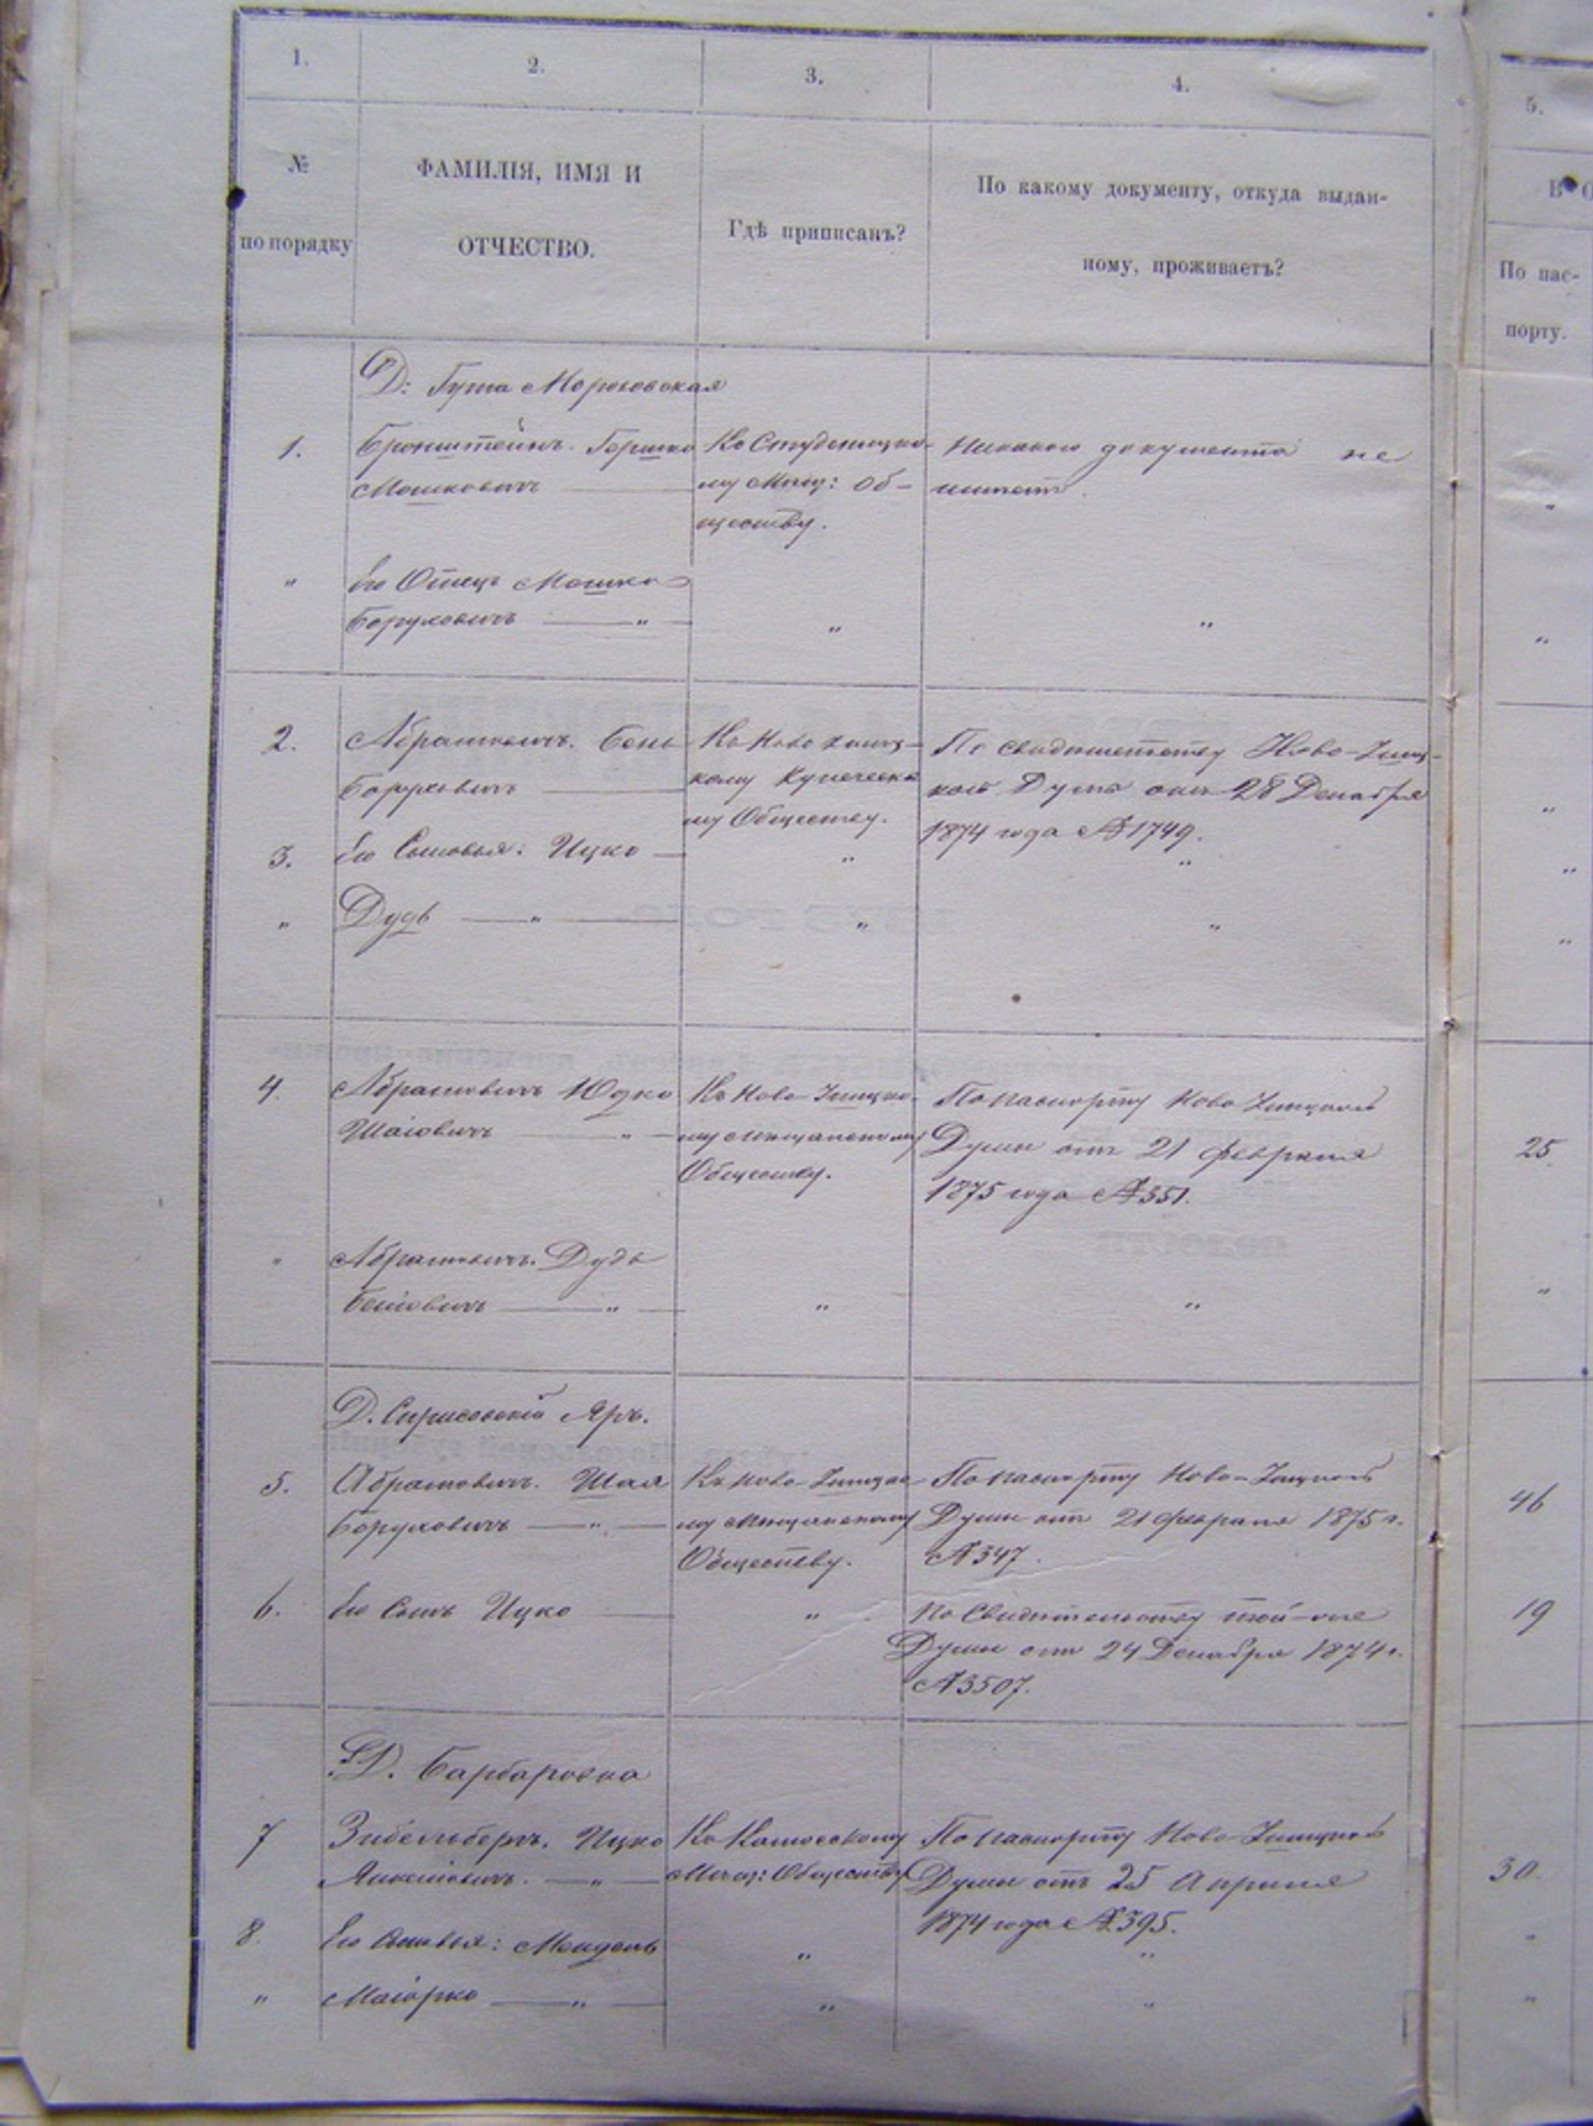 1.
2.
3.
4.
5.
№
по порядку
ФАМИЛІЯ, ИМЯ И
ОТЧЕСТВО.
Гдѣ приписанъ?
По какому документу, откуда выдан-
ному, проживаетъ?
По пас-
порту.
Д: Гута Морозовская
1.
Бронштейнъ Гершко
Мошковичъ
Къ Студеницко-
му Мѣщ: Об-
ществу.
Никакого документа не
имѣетъ.
"
"
его Отецъ Мошко
Боруховичъ — " —
"
"
"
2.
Абрамовичъ. Бень
Боруховичъ
Къ Ново
кому Купеческо
му Обществу.
По свидѣтельству Ново-Ушиц-
кой Думы отъ 28 Декабря
1874 года №1749.
"
3.
его Сыновья: Ицко —
"
"
"
"
Дудь — " —
"
"
"
4.
Абрамовичъ Юдко
Шаіовичъ — " —
Къ Ново-Ушицко-
му мѣщанскому
Обществу.
По паспорту Ново Ушицкой
Думы отъ 21 февраля
1875 года №351.
25.
"
Абрамовичъ. Дудь
Беніовичъ — " —
"
"
"
Д. Яръ.
5.
Абрамовичъ. Шая
Боруховичъ — " —
Къ Ново-Ушицко
му мѣщанскому
Обществу.
По паспорту Ново-Ушицкой
Думы отъ 21 февраля 1875 г.
№347.
46
6.
его Сынъ Ицко
"
по Свидѣтельству той-же
Думы отъ 24 Декабря 1874 г.
№3507.
19
Д. Барбаровка
7
Зибельбергъ. Ицко
— " —
Къ
Мѣщ: Обществу
По паспорту Ново-Ушицкой
Думы отъ 25 Апрѣля
1874 года №395.
30.
8.
Его Сыновья: Мендель
"
"
"
"
Маіорко — " —
"
"
"